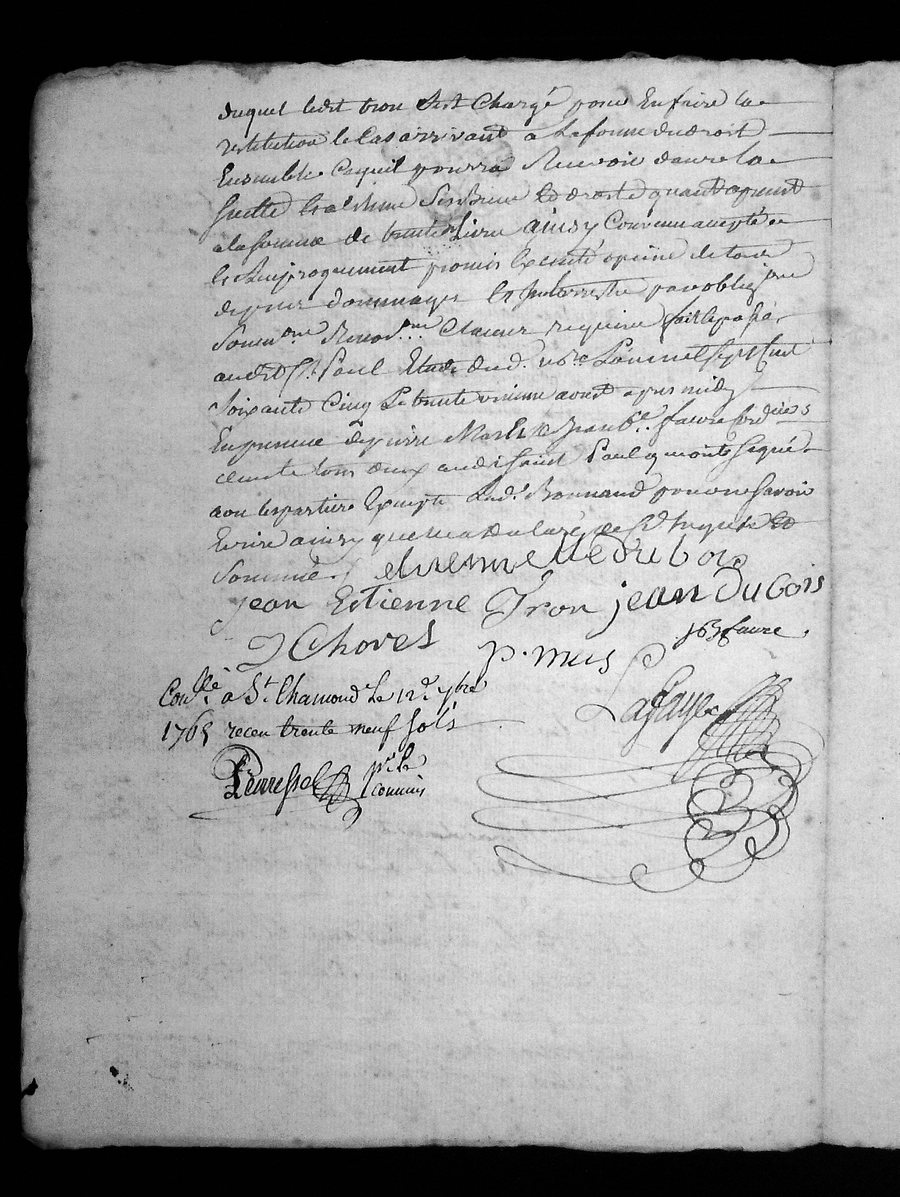 duquel ledit tron s'est Chargé pour En faire la
restitution le Cas arrivant a La forme du droit
Ensemble Ce quil pourra Recevoir dans la
suitte Et a Estimé Ses Biens Et droits quant a present
a la somme de trente Livre ainsy Convenu accepté
Et Reciproquement promis Executé a peine de tous
depens dommages Et Interrests par oblig.on
Soum.on Renon.on Clauses requises fait Et passé
audit St. Paul Etude dud. no.re L'an mil sept Cent
Soixante Cinq Le trente unieme aoust apres midy
En presence de pierre Et Jean b.te faure
tous deux audit Saint Paul q ont signé
avec les parties Excepté Lad. Bonnand pour ne savoir
Ecrire ainsy quelle a declaré de Ce Enquise Et
Sommée /. etienne dubois
Jean Estienne Tron jean dubois
Chovet p. mus jb faure
Lafaye
Con.llé à St. Chamond Le 12.e 7bre
1765 receu trente neuf sols
p.r Le
commis